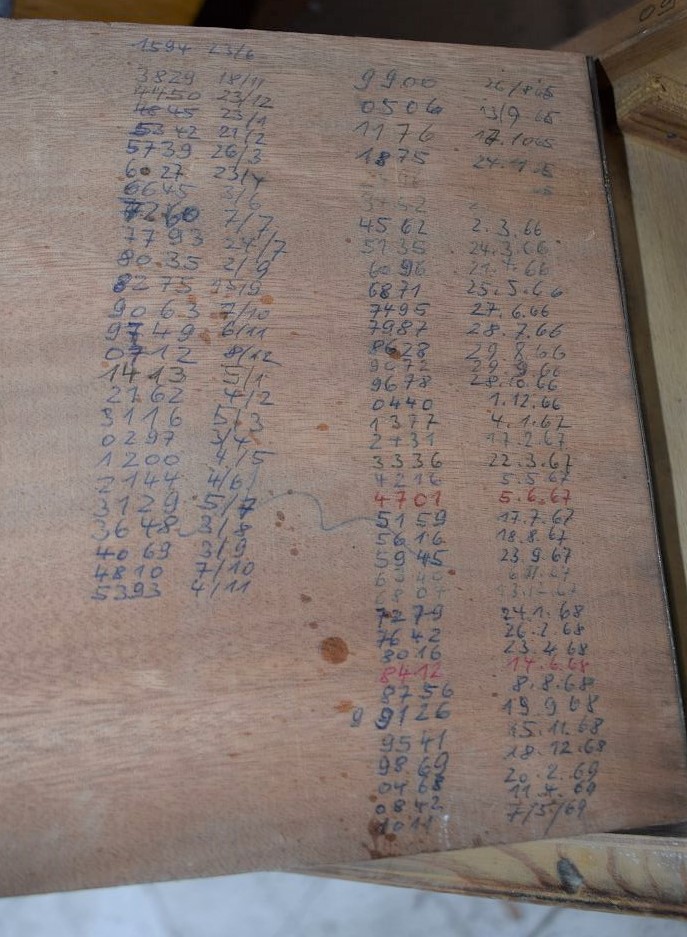 09
1594 23/6
3829 18/11
4450 23/12
4845 23/1
5342 21/2
5739 26/3
6027 23/4
6645 3/6
7260 7/7
7793 24/7
8035 2/9
8275 15/9
9063 7/10
9749 6/11
0712 8/12
1413 5/1
2162 4/2
3116 5/3
0297 3/4
1200 4/5
2144 4/6
3129 5/7
3648 3/8
4069 3/9
4810 7/10
5393 4/11
9900 26/8 65
0506 13/9 65
1176 17.10 65
1875 24.11.5
4562 2.3.66
5135 24.3.66
6096
6871 25.5.66
7495 27.6.66
7987 28.7.66
8628 29.8.66
9072 29.9.66
9678 28.10.66
0440 1.12.66
1377 4.1.67
2431 17.2.67
3336 22.3.67
4216 5.5.67
4701 5.6.67
5159 17.7.67
5616 18.8.67
5945 23.9.67
7279 24.1.68
7642 26.2.68
8016 23.4.68
8412 14.6.68
8756 8.8.68
9 9126 19 9 68
9541 15.11.68
9869 18.12.68
0468 20.2.69
0842 11.4.69
1011 7/5/69